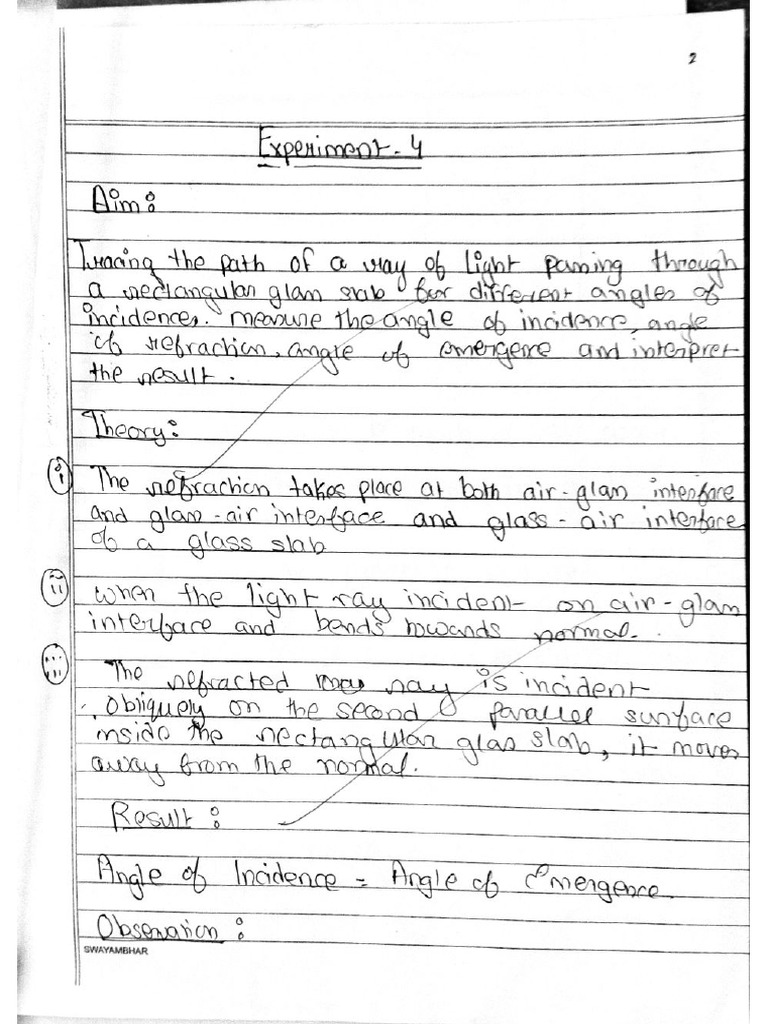 2
Experiment - 4
Aim:
Tracing the path of a ray of light passing through
a rectangular glass slab for different angles of
incidence. measure the angle of incidence, angle
of refraction, angle of emergence and interpret
the result.
Theory:
i The refraction takes place at both air-glass interface
and glass-air interface and glass-air interface
of a glass slab
ii when the light ray incident on air-glass
interface and bends towards normal.
iii The refracted ray is incident
obliquely on the second parallel surface
inside the rectangular glas slab, it moves
away from the normal.
Result:
Angle of Incidence = Angle of Emergence
Observation:
SWAYAMBHAR